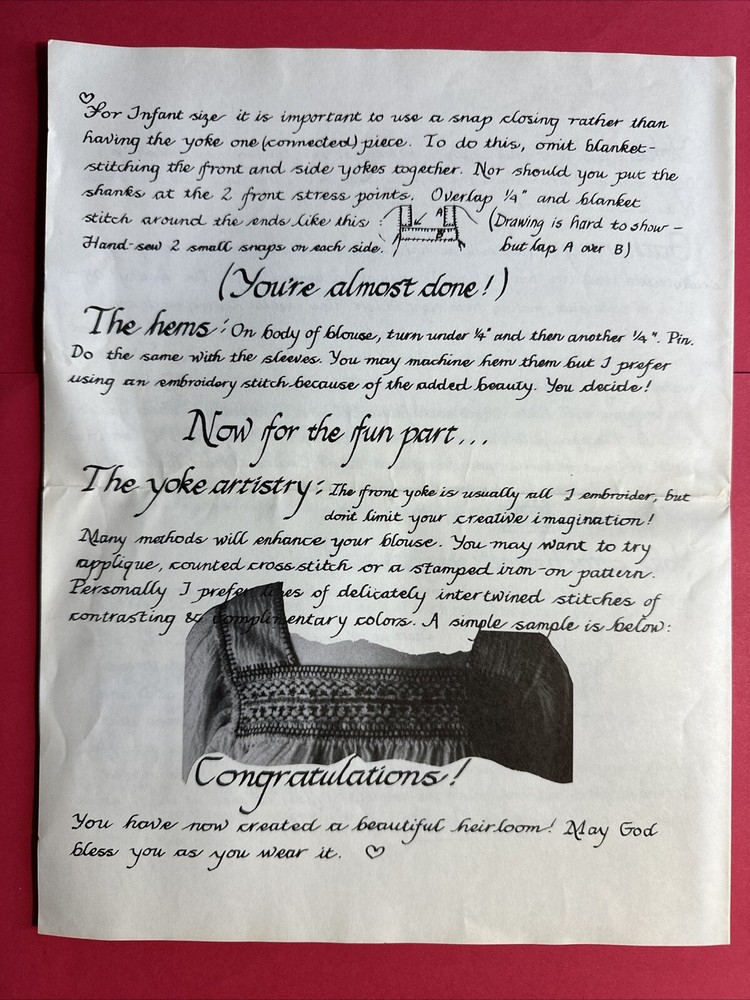 ♡ For Infant size it is important to use a snap closing rather than
having the yoke one (connected) piece. To do this, omit blanket-
stitching the front and side yokes together. Nor should you put the
shanks at the 2 front stress points. Overlap ¼" and blanket
stitch around the ends like this : A B (Drawing is hard to show -
Hand-sew 2 small snaps on each side. but lap A over B)
(You're almost done!)
The hems: On body of blouse, turn under ¼" and then another ¼". Pin.
Do the same with the sleeves. You may machine hem them but I prefer
using an embroidery stitch because of the added beauty. You decide!
Now for the fun part...
The yoke artistry: The front yoke is usually all I embroider, but
don't limit your creative imagination!
Many methods will enhance your blouse. You may want to try
applique, counted cross stitch or a stamped iron-on pattern.
Personally I prefer lines of delicately intertwined stitches of
contrasting & complimentary colors. A simple sample is below:
Congratulations!
You have now created a beautiful heirloom! May God
bless you as you wear it. ♡